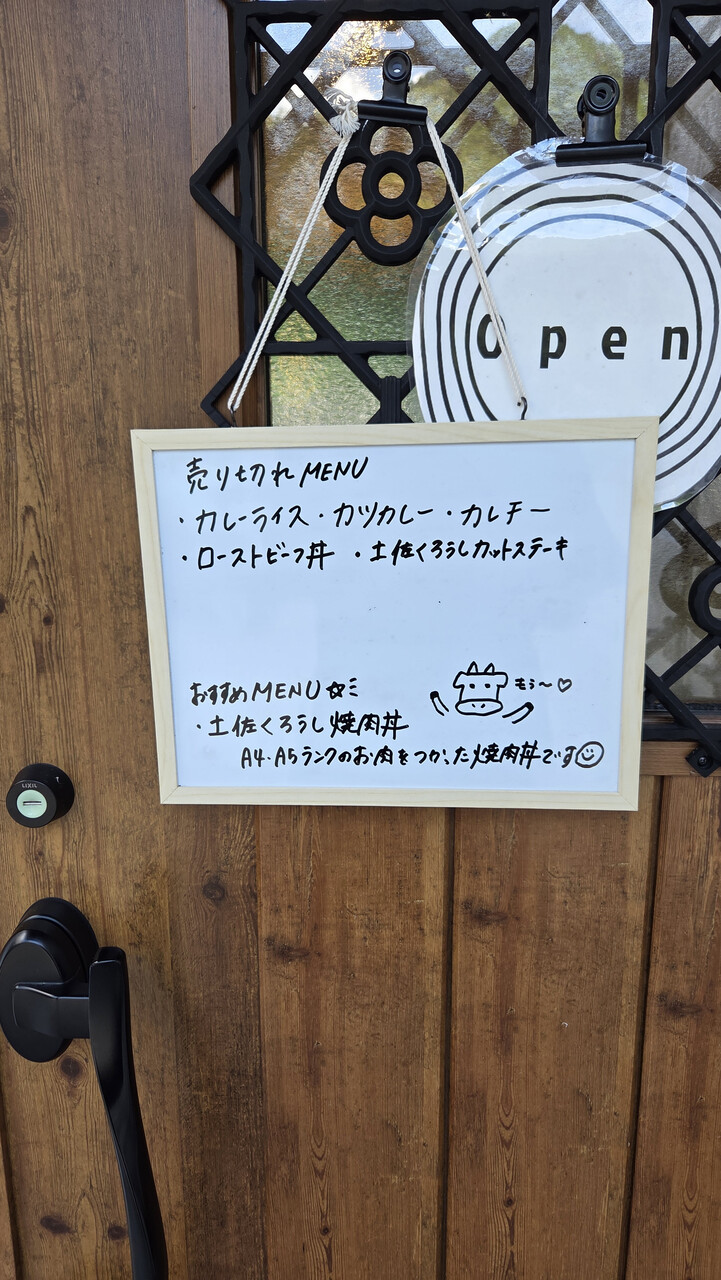 Open
売り切れMENU
・カレーライス・カツカレー・カレチー
・ローストビーフ丼 ・土佐くろうしカットステーキ
おすすめMENU☆ミ
もぅ〜♡
・土佐くろうし焼肉丼
A4・A5ランクのお肉をつかった焼肉丼です☺
LIXIL